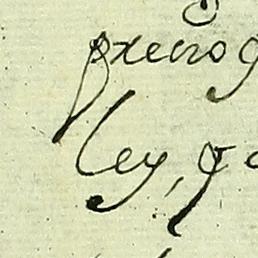 precio q
ley, q